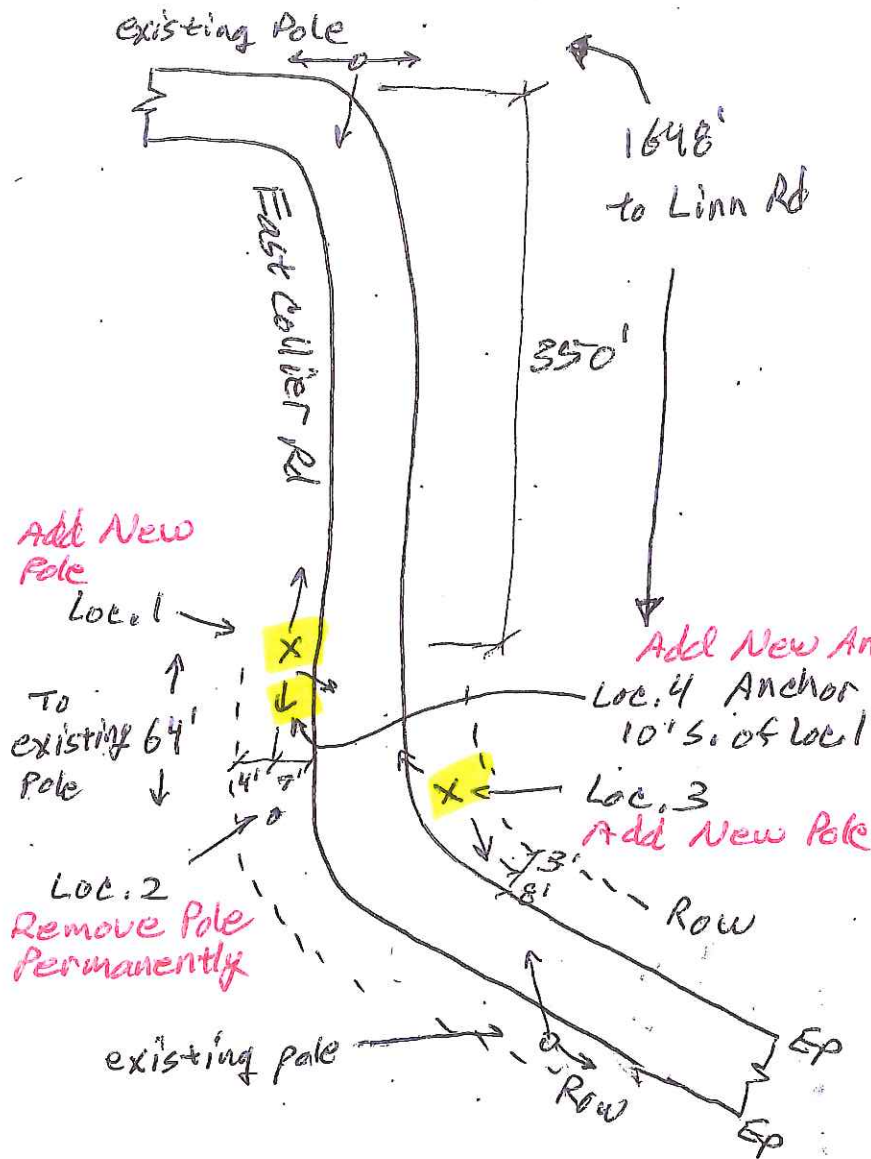 existing Pole
1648'
to Linn Rd
East Collier Rd
350'
Add New
Pole
Loc.1
To
existing 64'
Pole
14' 7'
Add New An
Loc.4 Anchor
10' S. of Loc 1
X
X
Loc.3
Add New Pole
Loc.2
Remove Pole
Permanently
13'
8'
Row
existing pole
Row
Ep
Ep